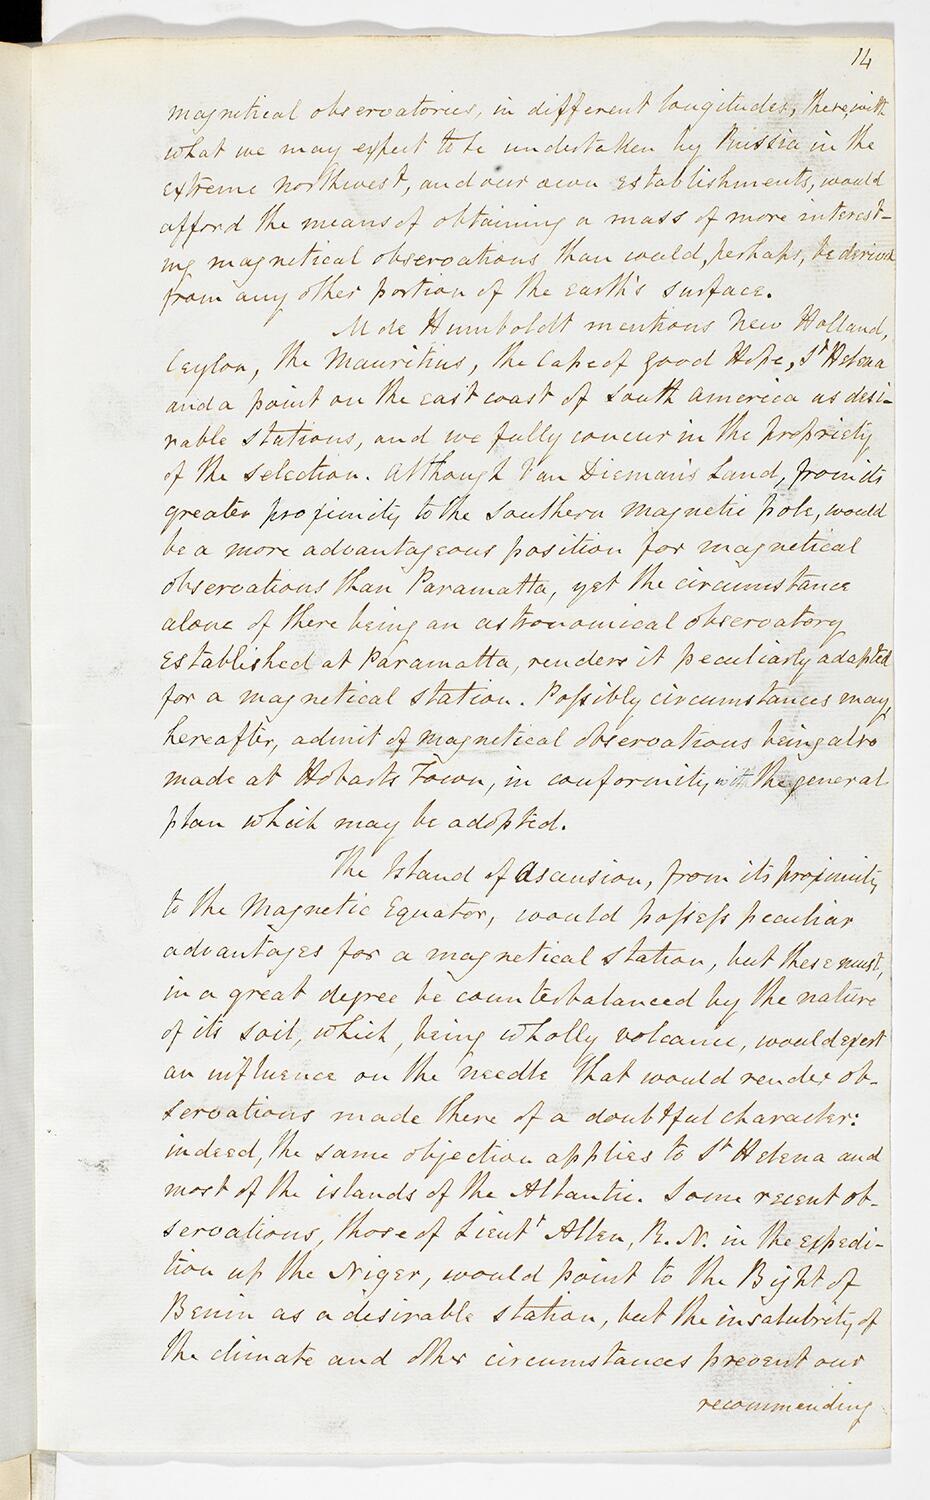 14
magnetical observatories, in different longitudes, these, with
what we may expect to be undertaken by Russia in the
extreme northwest, and our own establishments, would
afford the means of obtaining a mass of more interest-
ing magnetical observations than could, perhaps, be derived
from any other portion of the earth's surface.
M de Humboldt mentions New Holland,
Ceylon, the Mauritius, the Cape of Good Hope, St Helena
and a point on the east coast of South America as desi-
rable stations, and we fully concur in the propriety
of the selection. Although Van Dieman's Land, from its
greater proximity to the southern magnetic pole, would
be a more advantageous position for magnetical
observations than Paramatta, yet the circumstance
alone of there being an astronomical observatory
established at Paramatta, renders it peculiarly adapted
for a magnetical station. Possibly circumstances may,
hereafter, admit of magnetical observations being also
made at Hobarts Town, in conformity with the general
plan which may be adopted.
The Island of Ascension, from its proximity
to the Magnetic Equator, would possess peculiar
advantages for a magnetical station, but these must,
in a great degree be counterbalanced by the nature
of its soil, which, being wholly volcanic, would exert
an influence on the needle that would render ob-
servations made there of a doubtful character:
indeed, the same objection applies to St Helena and
most of the islands of the Atlantic. Some recent ob-
servations, those of Lieutt Allen, R. N. in the expedi-
tion up the Niger, would point to the Bight of
Benin as a desirable station, but the insalubrity of
the climate and other circumstances prevent our
recommending